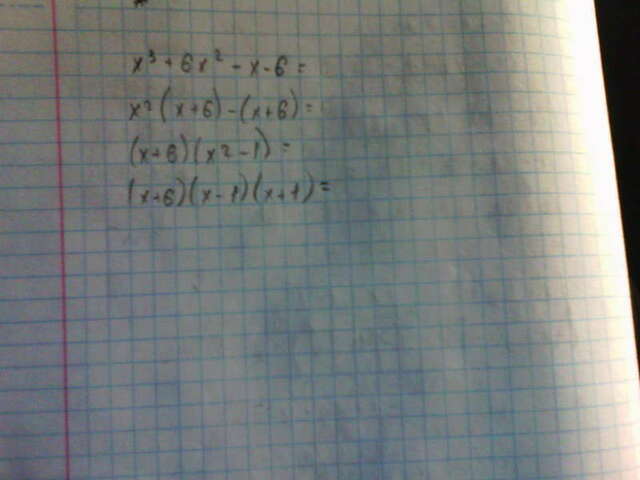 x³ + 6x² - x - 6 =
x²(x+6) - (x+6) =
(x+6)(x²-1) =
(x+6)(x-1)(x+1) =